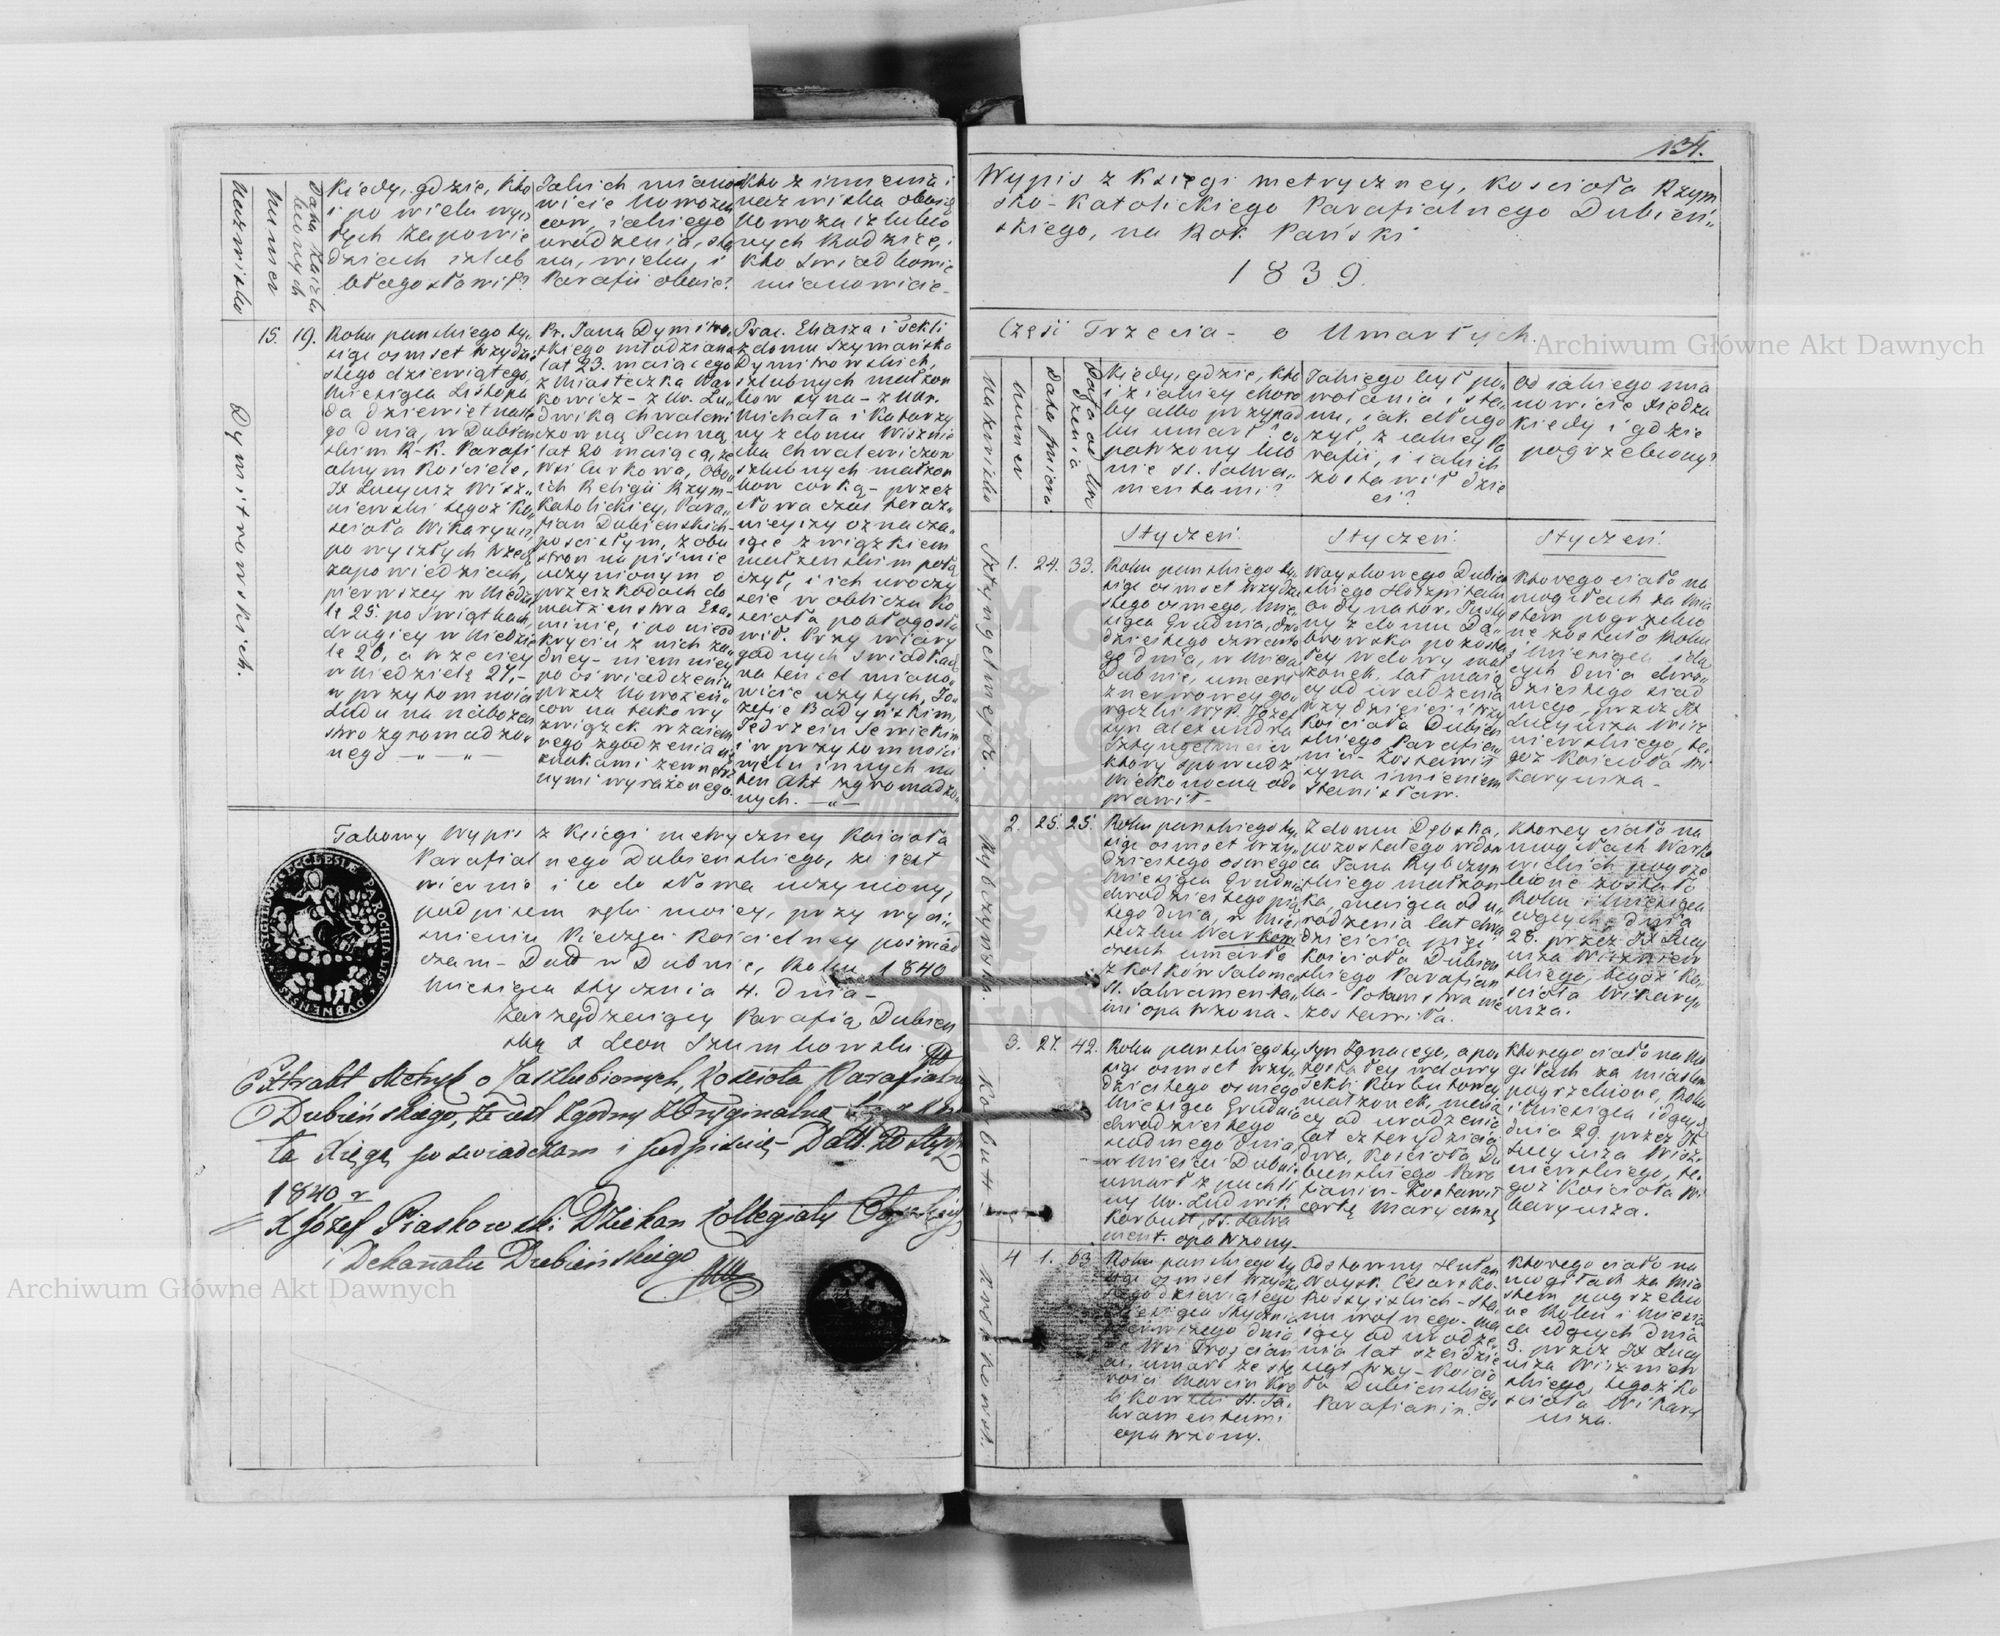 Nazwisko
Numer
Data Kalendarzowych
Kiedy, gdzie, kto
i po wielu wyi
tych Zapowie
dziach szlub
błogosławił?
Jakich miano
wicie Nowożeń
cow, iakiego
urodzenia, sta
nu, wieku, i
Parafii oboie?
Kto z imienia i
nazwiska oboig
Nowoża szlubio
nych Rodzice, i
Kto swiadkowie
mianowicie
Dymitrowskich.
15. 19.
Roku panskiego ty„
siąc osmset trzydzie
stego dziewiątego,
Miesiąca Listopa
da dziewiętnaste
go dnia, w Dubień
skim R-K. Parafi
alnym Kościele,
JX Lucyusz Wisz„
niewski tegoż Ko„
scioła Wikaryusz,
po wyszłych trzech
zapowiedziach,
pierwszey w Niedzie
le 25. po Swiątkach,
drugiey w Niedzie
le 26, a trzeciey
w Niedzielę 27,-
w przytomności
Ludu na nabożeń
stwo zgromadzo„
nego —„—„—
Pr. Jana Dymitro„
skiego młodziana
lat 23. maiącego
z Miasteczka War
kowicz - z Ur. Lu„
dwiką Chwalewi
czowną Panną
lat 20 maiącą, ze
Wsi Curkowa, obo„
ich Religii Rzym„
Katolickiey, Para„
fian Dubienskich-
po scisłym, z obu
stron na piśmie
uczynionym o
przeszkodach do
małżeństwa Exa„
minie, i po nieod
kryciu z nich ża„
dney - niemniey
po oswiadczeniu
przez Nowożeń„
cow na takowy
związek wzaiem
nego zgodzenia się
znakami zewnętrz
nymi wyrażonego.
Prac. Eliasza i Tekli
z domu Szymańska
Dymitrowskich,
szlubnych małżon
kow syna - z Ur.
Michała i Katarzy
ny z domu Wisznie
ska Chwalewiczow
szlubnych małżon
kow corką - przez
słowa czas teraz„
nieyszy oznacza„
iące związkiem
małżenskim połą
czył, i ich uroczy
scie w obliczu Ko
scioła pobłogosła
wił. Przy wiary
godnych swiadkach
na ten cel miano„
wicie użytych, Jo„
zefie Badyńskim,
Jędrzeiu Sewickim
i w przytomności
wielu innych na
ten Akt zgromadzo„
nych. —„—
Takowy Wypis z Księgi metryczney Kościoła
Parafialnego Dubienskiego, że iest
wiernie i co do słowa uczyniony,
podpisem ręki moiey, przy wyci„
snieniu Pieczęci Kościelney poświad
czam - Datt w Dubnie, Roku 1840
Miesiąca Stycznia 4. dnia -
Zarządzaiący Parafią Dubien
ską X Leon Szumkowski
Extrakt Metryk o Zaszlubionych, Kościoła Parafialne
Dubieńskiego, że iest zgodny z Oryginalną
ta Xięgą poswiadczam i podpisuię - Datt. 20 Stycz
1840 r
X Józef Piaskowski Dziekan Kollegiaty
i Dekanatu Dubieńskiego
134.
Wypis z Księgi metryczney, Kościoła Rzym
sko-Katolickiego Parafialnego Dubień„
skiego, na Rok Pański
1839.
Część Trzecia - o Umarłych.
Nazwisko
Numer
Data śmierci
Kiedy, gdzie, kto
i z iakiey choro
by albo przypad
ku umarł i o„
patrzony lub
nie SS. Sakra„
mentami?
Jakiego był po„
wołania i sta„
nu, iak długo
żył, z iakiey Pa
rafii, i iakich
zostawił dzie
ci?
Od iakiego mia
nowicie Xiędza
kiedy i gdzie
pogrzebiony?
Styczeń.
Styczeń.
Styczeń.
Sztyngelmejer.
1. 24. 33.
Roku panskiego ty„
siąc osmset trzydzie
stego osmego, Mie„
siąca Grudnia, dwu
dziestego czwarte
go dnia, w Mieście
Dubnie, umarł
z nerwowey go„
rączki Wyk. Józef
syn Alexandra
Sztyngelmeier
ktory spowiedź
Wielkanocną od„
prawił -
Woyskowego Dubien
skiego Hoszpitalu
ordynator, Justy
ny z domu Dą„
browska pozosta
łey wdowy mał
żonek, lat maią
cy od urodzenia
trzydzieści i trzy
Kościoła Dubien
skiego Parafia„
nin - Zostawił
syna imieniem
Stanisław.
Ktorego ciało na
mogiłach za Mia
stem pogrzebio
ne zostało Roku
i miesiąca idą
cych dnia dwu„
dziestego siod
mego, przez JX
Lucyusza Wisz
niewskiego, te„
goż Kościoła Wi
karyusza -
Rybczynska.
2. 25. 25.
Roku panskiego ty„
siąc osmset trzy„
dziestego osmego
Miesiąca Grudnia
dwudziestego pią
tego dnia, w Mia
steczku Warkowi
czach umarła
z Kołkow Salomea
SS. Sakramenta„
mi opatrzona -
Z domu Dębska,
pozostałego wdow
ca Jana Rybczyn
skiego małżon
ka, maiąca od u„
rodzenia lat dwa
dzieścia pięć
Kościoła Dubien
skiego Parafian
ka - Potomstwa nie
zostawiła.
Ktorey ciało na
mogiłach Warko
wickich pogrze
bione zostało
Roku i miesiąca
idących dnia
28. przez JX Lucy
usza Wiszniew
skiego, tegoż Ko„
scioła Wikary„
usza.
Korbutt
3. 27. 42.
Roku panskiego ty„
siąc osmset trzy„
dziestego osmego
Miesiąca Grudnia
dwudziestego
siodmego dnia,
w Mieście Dubnie
umarł z puchli
ny Ur. Ludwik
Korbutt, SS. Sakra
ment. opatrzony.
Syn Ignacego, a po„
zostałey wdowy
Tekli Korbutowey
małżonek, maią
cy od urodzenia
lat czterydzieści
dwa, Kościoła Du
bienskiego Para
fianin - Zostawił
corkę Maryannę
Ktorego ciało na Mo
giłach za miastem
pogrzebione, Roku
i Miesiąca idących
dnia 29. przez JX
Lucyusza Wisz„
niewskiego, te„
goż Kościoła Wi
karyusza.
4 1. 63.
Roku panskiego ty
siąc osmset trzydzie
stego dziewiątego
Miesiąca Stycznia
pierwszego dnia
we Wsi Troscian
cu. umarł ze sta
rości Marcin Kro
likowski SS. Sa„
kramentami
opatrzony.
Odstawny Hułan
Woysk Cesarsko-
Rossyiskich - Sta„
nu wolnego - ma
iący od urodze„
nia lat szescdzie
siąt trzy - Kościo
ła Dubienskiego
Parafianin.
Ktorego ciało na
mogiłach za Mia
stem pogrzebio
ne Roku i Miesią
ca idących dnia
3. przez JX Lucy
usza Wiszniew
skiego, tegoż Ko
scioła Wikary
usza.
Archiwum Główne Akt Dawnych
Archiwum Główne Akt Dawnych